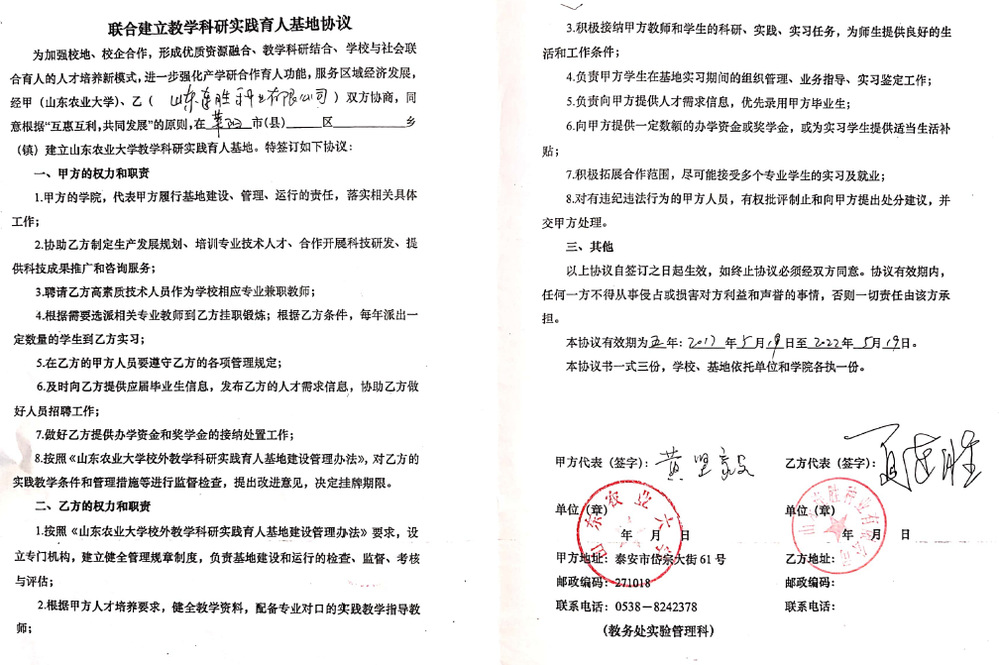 联合建立教学科研实践育人基地协议
为加强校地、校企合作，形成优质资源融合、教学科研结合、学校与社会联
合育人的人才培养新模式，进一步强化产学研合作育人功能，服务区域经济发展，
经甲（山东农业大学）、乙（山东连胜种业有限公司）双方协商，同
意根据“互惠互利,共同发展”的原则,在 莱阳 市(县)______区____________乡
（镇）建立山东农业大学教学科研实践育人基地。特签订如下协议：
一、甲方的权力和职责
1.甲方的学院，代表甲方履行基地建设、管理、运行的责任，落实相关具体
工作；
2.协助乙方制定生产发展规划、培训专业技术人才、合作开展科技研发、提
供科技成果推广和咨询服务；
3.聘请乙方高素质技术人员作为学校相应专业兼职教师；
4.根据需要选派相关专业教师到乙方挂职锻炼；根据乙方条件，每年派出一
定数量的学生到乙方实习；
5.在乙方的甲方人员要遵守乙方的各项管理规定；
6.及时向乙方提供应届毕业生信息，发布乙方的人才需求信息，协助乙方做
好人员招聘工作；
7.做好乙方提供办学资金和奖学金的接纳处置工作；
8.按照《山东农业大学校外教学科研实践育人基地建设管理办法》，对乙方的
实践教学条件和管理措施等进行监督检查，提出改进意见，决定挂牌期限。
二、乙方的权力和职责
1.按照《山东农业大学校外教学科研实践育人基地建设管理办法》要求，设
立专门机构，建立健全管理规章制度，负责基地建设和运行的检查、监督、考核
与评估；
2.根据甲方人才培养要求，健全教学资料，配备专业对口的实践教学指导教
师；
3.积极接纳甲方教师和学生的科研、实践、实习任务，为师生提供良好的生
活和工作条件；
4.负责甲方学生在基地实习期间的组织管理、业务指导、实习鉴定工作；
5.负责向甲方提供人才需求信息，优先录用甲方毕业生；
6.向甲方提供一定数额的办学资金或奖学金，或为实习学生提供适当生活补
贴；
7.积极拓展合作范围，尽可能接受多个专业学生的实习及就业；
8.对有违纪违法行为的甲方人员，有权批评制止和向甲方提出处分建议，并
交甲方处理。
三、其他
以上协议自签订之日起生效，如终止协议必须经双方同意。协议有效期内，
任何一方不得从事侵占或损害对方利益和声誉的事情，否则一切责任由该方承
担。
本协议有效期为五年：2017年5月19日至2022年5月19日。
本协议书一式三份，学校、基地依托单位和学院各执一份。
甲方代表（签字）：黄坚毅 乙方代表（签字）：
单位（章） 单位（章）
山东农业大学
年 月 日 年 月 日
甲方地址：泰安市岱宗大街 61 号 乙方地址：
邮政编码：271018 邮政编码：
联系电话：0538－8242378 联系电话：
（教务处实验管理科）